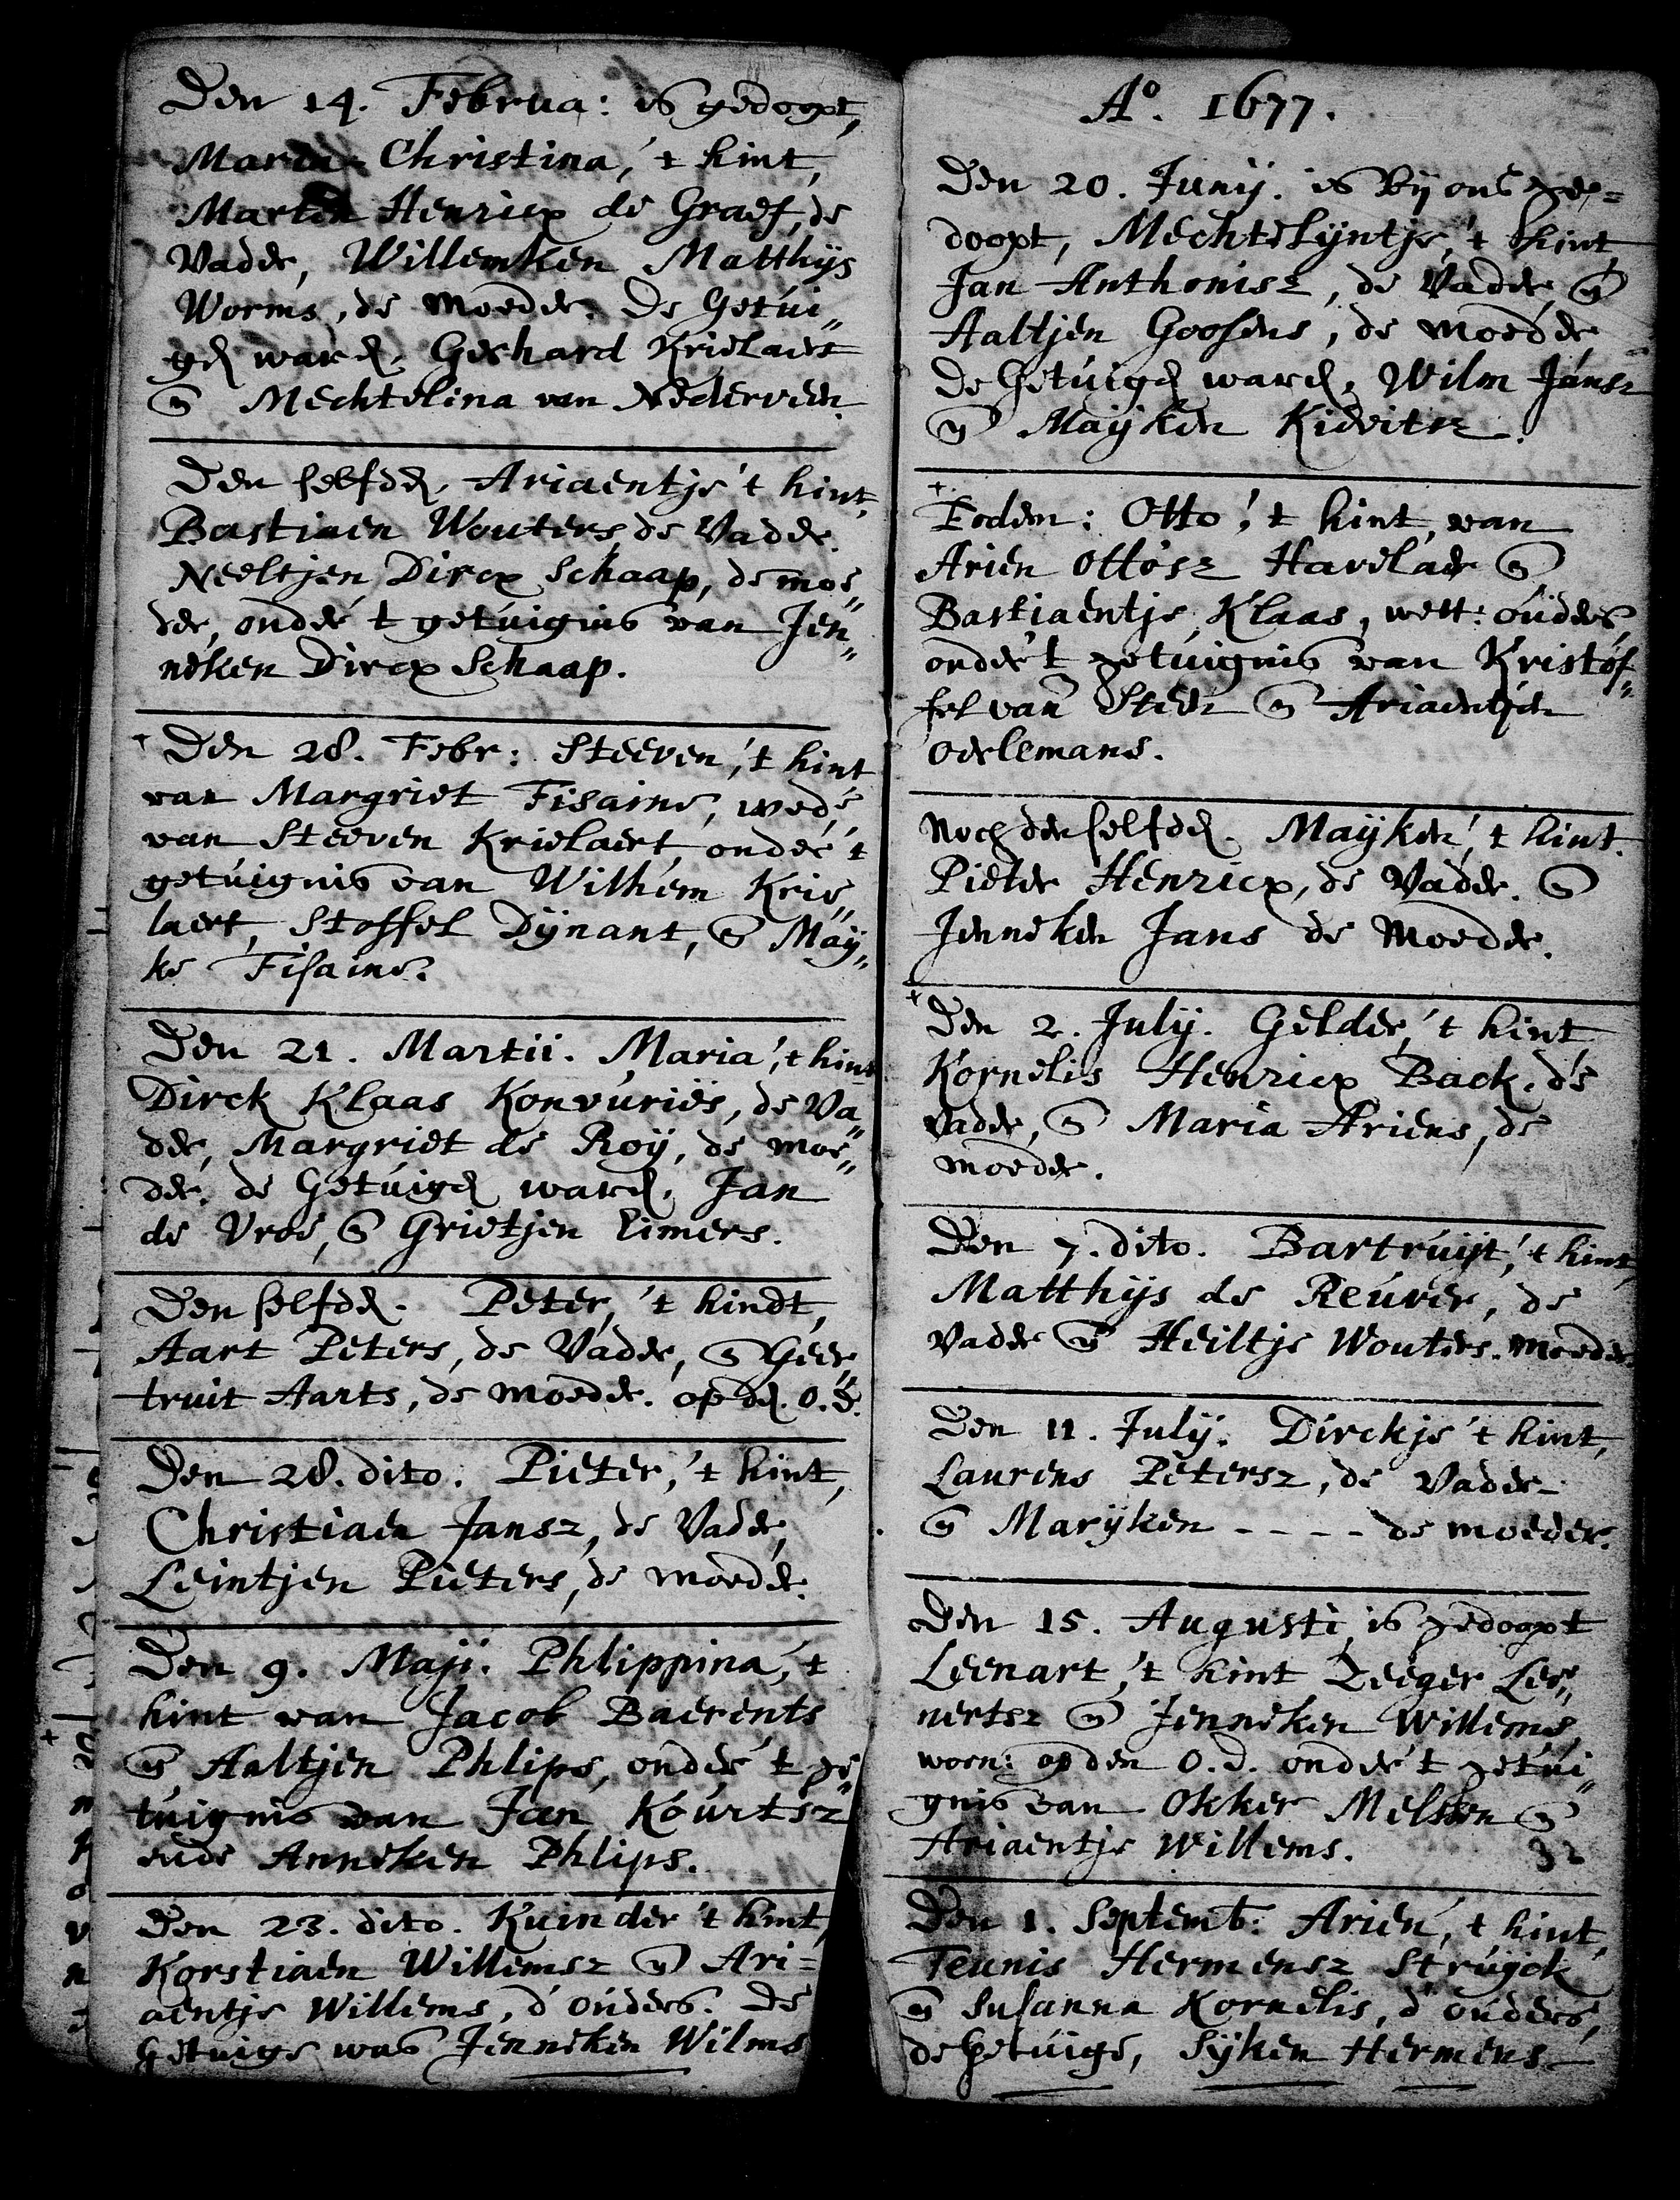 Den 14. Februa: is gedoopt,
Maria Christina, 't kint,
Marten Henricx de Graef, de
Vader, Willemken Matthijs
Worms, de moeder. De Getui„
gen waren, Gerhard Krielaert
en Mechtelina van Nederveen.
Den selfden, Ariaentje 't kint.
Bastiaen Wouters de Vader.
Neeltjen Dircx Schaap, de moe„
der, onder 't getuignis van Jen„
neken Dircx Schaap.
+ Den 28. Febr: Steeven, 't kint
van Margriet Fisains, wede
van Steeven Krielaert, onder 't
getuignis van Wilhem Krie„
laert, Stoffel Dynant, en May„
ke Fisains.
Den 21. Martii. Maria, 't kint
Dirck Klaas Konvuriës, de Va„
der, Margriet de Roy, de moe„
der. de Getuigen waren, Jan
de Vroe, en Grietjen Eimers.
Den selfden. Peter, 't kindt,
Aart Peters, de Vader, en Geer„
truit Aarts, de moeder. op den O.d.
Den 28. dito. Pieter, 't kint,
Christiaen Jansz, de Vader,
Leintjen Pieters, de moeder.
Den 9. Maji. Phlippina, 't
kint van Jacob Baerents
en Aaltjen Phlips, onder 't ge„
tuignis van Jan Kourtsz
ende Anneken Phlips.
Den 23. dito. Kuinder 't kint,
Korstiaen Willemsz en Ari=
aentje Willems, d'ouders. De
Getuige was Jenneken Wilms
Aº. 1677.
Den 20. Junij. is bij ons ge=
doopt, Mechtelyntje, 't kint,
Jan Anthonisz, de Vader, en
Aaltjen Goosens, de moeder
De Getuigen waren, Wilm Jansz
en Mayken Kievitsz.
+ Eodem: Otto, 't kint, van
Arien Ottosz Havelaer en
Bastiaentje Klaas, wett: ouders
onder 't getuignis van Kristof„
fel van Steen en Ariaentjen
Oerlemans.
Noch den selfden. Mayken, 't kint.
Pieter Henricx, de Vader. en
Jenneken Jans de Moeder.
+ Den 2. July. Gelder, 't kint
Kornelis Henricx Back, de
vader, en Maria Ariens, de
moeder.
Den 7. dito. Bartruijt, 't kint,
Matthijs de Reuver, de
Vader en Heiltje Wouters. moeder.
Den 11. July. Dirckje 't kint,
Laurens Petersz, de Vader
en Maryken - - - - de moeder.
Den 15. Augusti, is gedoopt
Leenart, 't kint Zeeger Lee„
nertsz en Jenneken Willems,
woon: op den O.d. onder 't getui„
gnis van Okker Melssen en
Ariaentje Willems.
Den 1. Septemb: Arien, 't kint,
Teunis Hermensz Struyck
en Susanna Kornelis, d'ouders,
de getuige, Syken Hermens